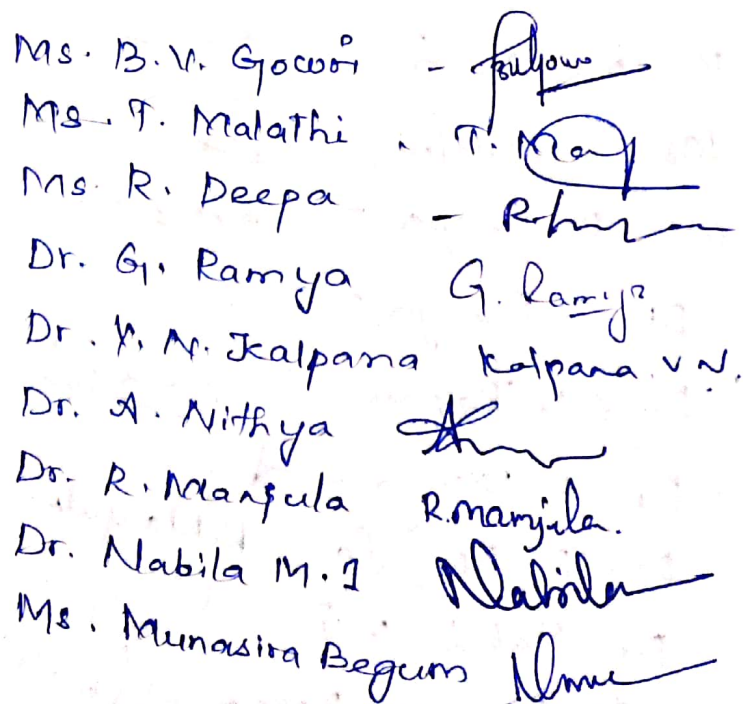 Ms. B.V. Gowri -
Ms. T. Malathi - T. Mal
Ms. R. Deepa -
Dr. G. Ramya G. Ramya
Dr. V. N. Kalpana Kalpana. V N.
Dr. A. Nithya
Dr. R. Manjula R. Manjula.
Dr. Nabila M. I Nabila
Ms. Munasira Begum